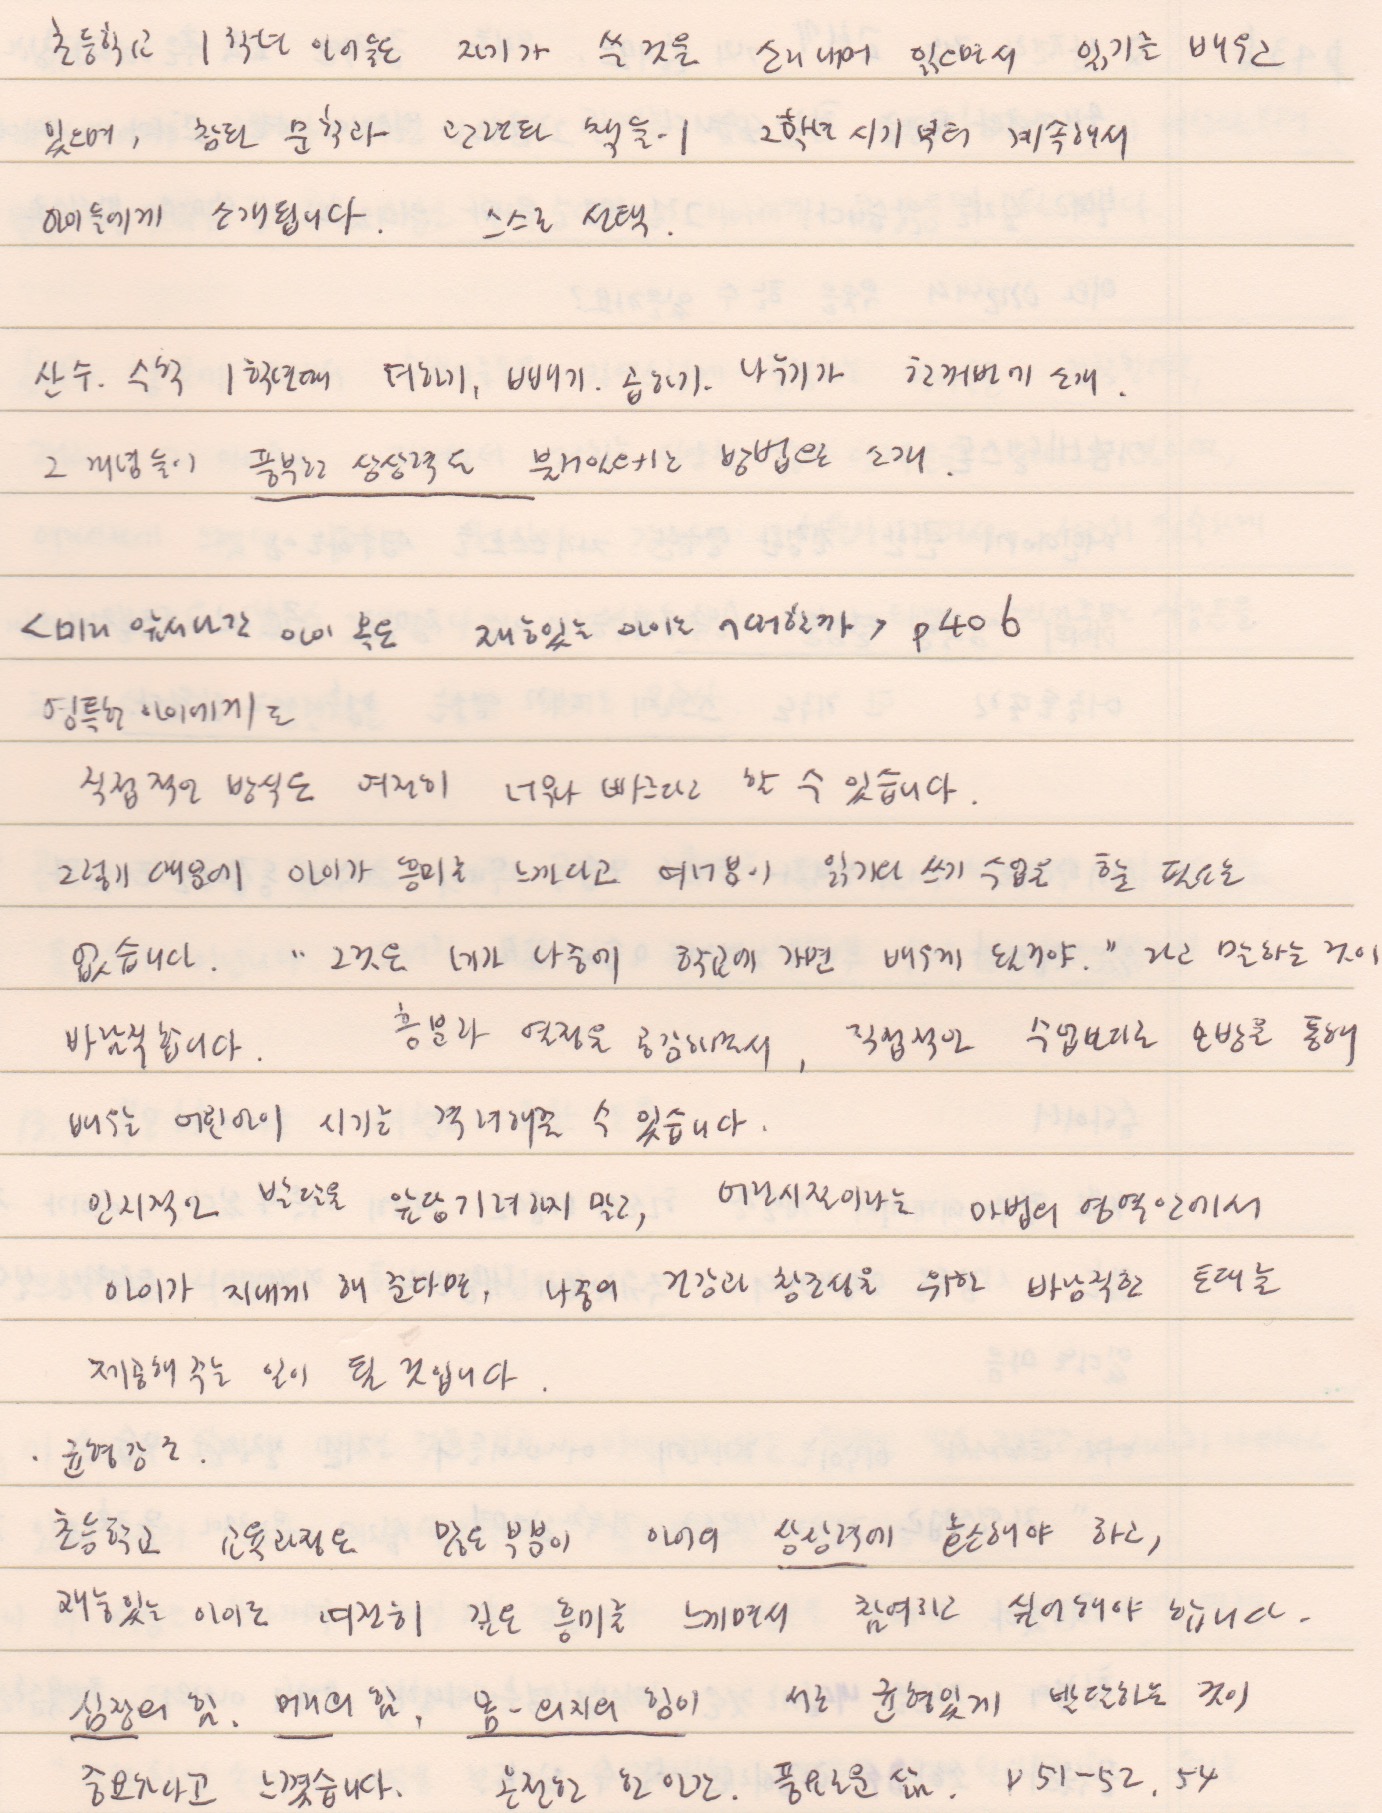 초등학교 1학년 아이들은 자기가 쓴 것을 소리내며 읽으면서 읽기를 배우고
있으며, 참된 문학과 관련된 책들이 2학년 시기부터 계속해서
아이들에게 소개됩니다. 스스로 선택.
산수. 수학 1학년때 더하기, 빼기. 곱하기. 나누기가 한꺼번에 소개.
그 개념들이 풍부한 상상력도 불어있으키는 방법으로 소개.
<미리 앞서나간 아이 혹은 재능있는 아이는 어떠할까> p406
영특한 아이에게도
직접적인 방식은 여전히 너무나 빠르다고 할 수 있습니다.
그렇기 때문에 아이가 흥미를 느낀다고 여러분이 읽기와 쓰기 수업을 할 필요는
없습니다. "그것은 네가 나중에 학교에 가면 배우게 될거야." 라고 말하는 것이
바람직합니다. 흥분과 열정을 공감하면서, 직접적인 수업보다는 모방을 통해
배우는 어린아이 시기를 격려해줄 수 있습니다.
인지적인 발달을 앞당기려하지 말고, 어린시절이라는 마법의 영역안에서
아이가 지내게 해 준다면, 나중의 건강과 창조성을 위한 바람직한 토대를
제공해 주는 일이 될 것입니다.
· 균형감각.
초등학교 교육과정은 많은 부분이 아이의 상상력에 호소해야 하고,
재능있는 아이도 여전히 깊은 흥미를 느끼면서 참여하고 싶어해야 합니다.
심장의 힘. 머리의 힘, 몸-의지의 힘이 서로 균형있게 발달하는 것이
중요하다고 느꼈습니다. 온전한 한 인간. 풍요로운 삶. p51-52, 54